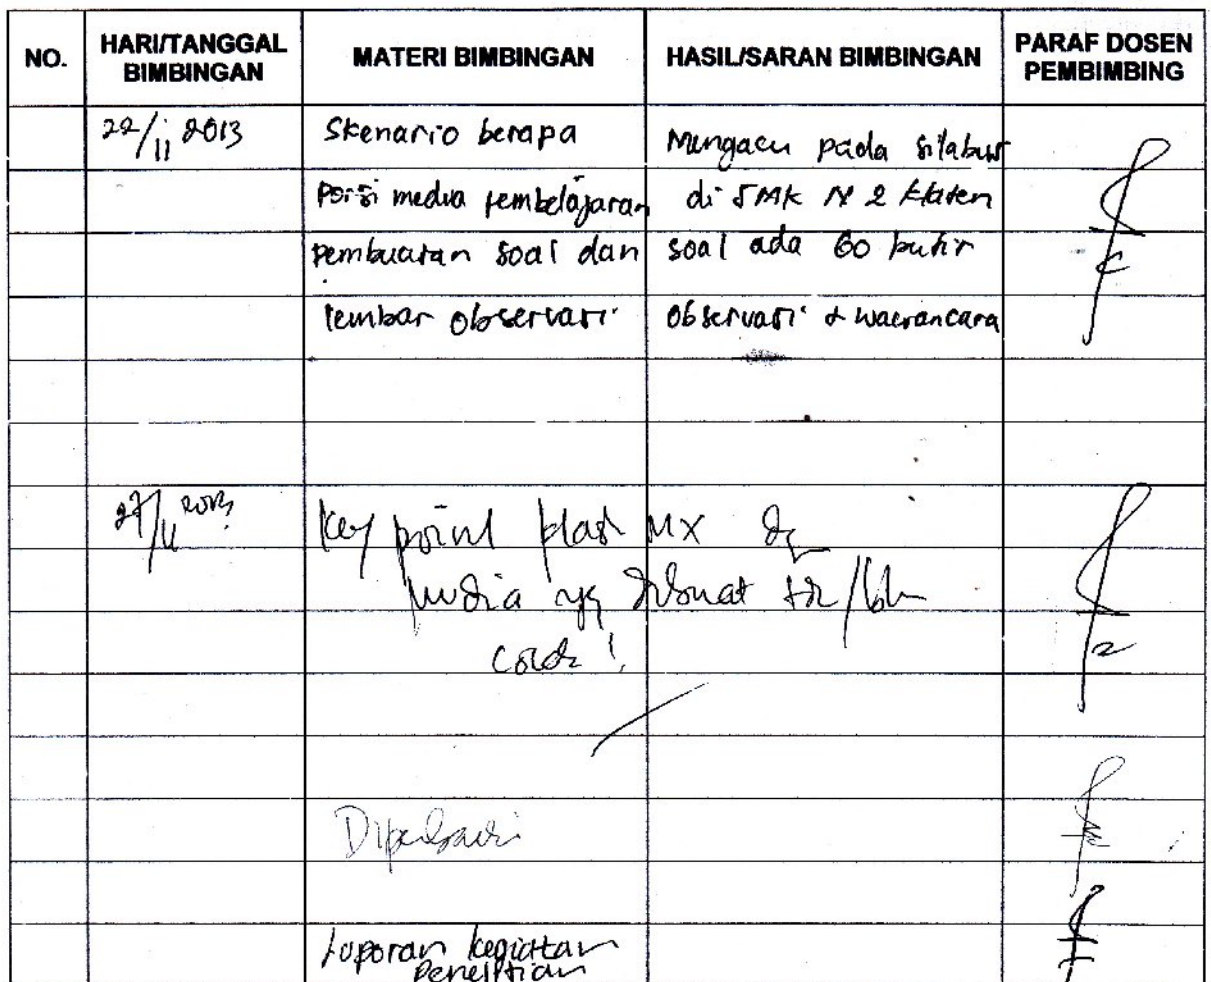 NO.
HARI/TANGGAL BIMBINGAN
MATERI BIMBINGAN
HASIL/SARAN BIMBINGAN
PARAF DOSEN PEMBIMBING
22/11 2013
Skenario berapa
Mengacu pada silabus
Porsi media pembelajaran
di SMK N 2 Klaten
pembuatan soal dan
soal ada 60 butir
lembar observasi
observasi & wawancara
27/11 2013
Key point flash MX
media yg dibuat
Diperbaiki
Laporan kegiatan
penelitian